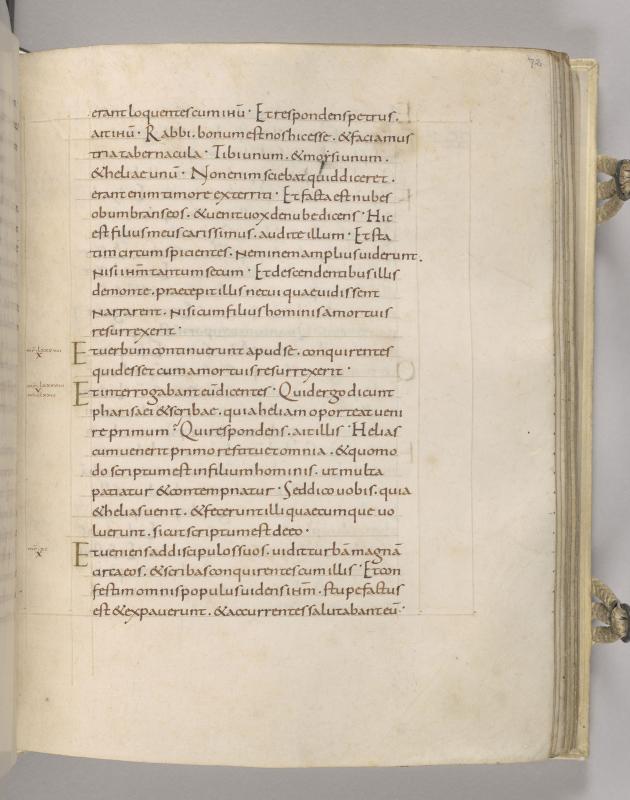 72
erant loquentes cum ihu · Et respondens petrus .
ait ihu · Rabbi . bonum est nos hic esse . & faciamus
tria tabernacula · Tibi unum . & moysi unum .
& heliae unū · Non enim sciebat quid diceret .
erant enim timore exterriti · Et facta est nubes
obumbrans eos . & uenit uox de nube dicens · Hic
est filius meus carissimus . audite illum · Et sta
tim circumspicientes . Neminem amplius uiderunt .
Nisi ihm tantum secum · Et descendentibus illis
de monte . praecepit illis ne cui quae uidissent
Narrarent . Nisi cum filius hominis a mortuis
resurrexerit ·
Et uerbum continuerunt apud se . conquirentes
quid esset cum a mortuis resurrexerit ·
Et interrogabant eū dicentes · Quid ergo dicunt
pharisaei & scribae . quia heliam oporteat ueni
re primum · Qui respondens . ait illis · Helias
cum uenerit primo restituet omnia . & quomo
do scriptum est in filium hominis . ut multa
patiatur & contempnatur · Sed dico uobis . quia
& helias uenit . & fecerunt illi quaecumque uo
luerunt . sicut scriptum est de eo ·
Et ueniens ad discipulos suos . uidit turbā magnā
circa eos . & scribas conquirentes cum illis · Et con
festim omnis populus uidens ihm . stupefactus
est & expauerunt . & accurrentes salutabant eū ·